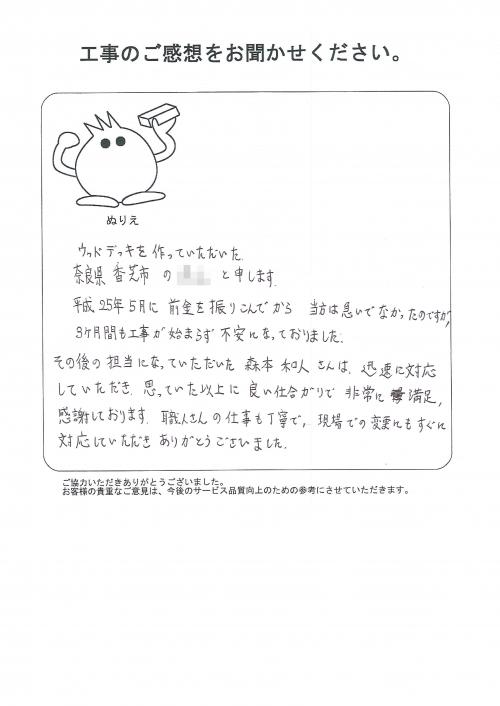 工事のご感想をお聞かせください。
ぬりえ
ウッドデッキを作っていただいた
奈良県 香芝市 の と申します。
平成25年5月に 前金を振りこんでから 当方は急いでなかったのですが、
3ヶ月間も工事が始まらず 不安になっておりました。
その後の担当になっていただいた 森本 和人 さんは、迅速に対応
していただき 思っていた以上に 良い仕合がりで 非常に 満足,
感謝しております。職人さんの仕事も丁寧で, 現場での変更にもすぐに
対応していただき ありがとうございました。
ご協力いただきありがとうございました。
お客様の貴重なご意見は、今後のサービス品質向上のための参考にさせていただきます。